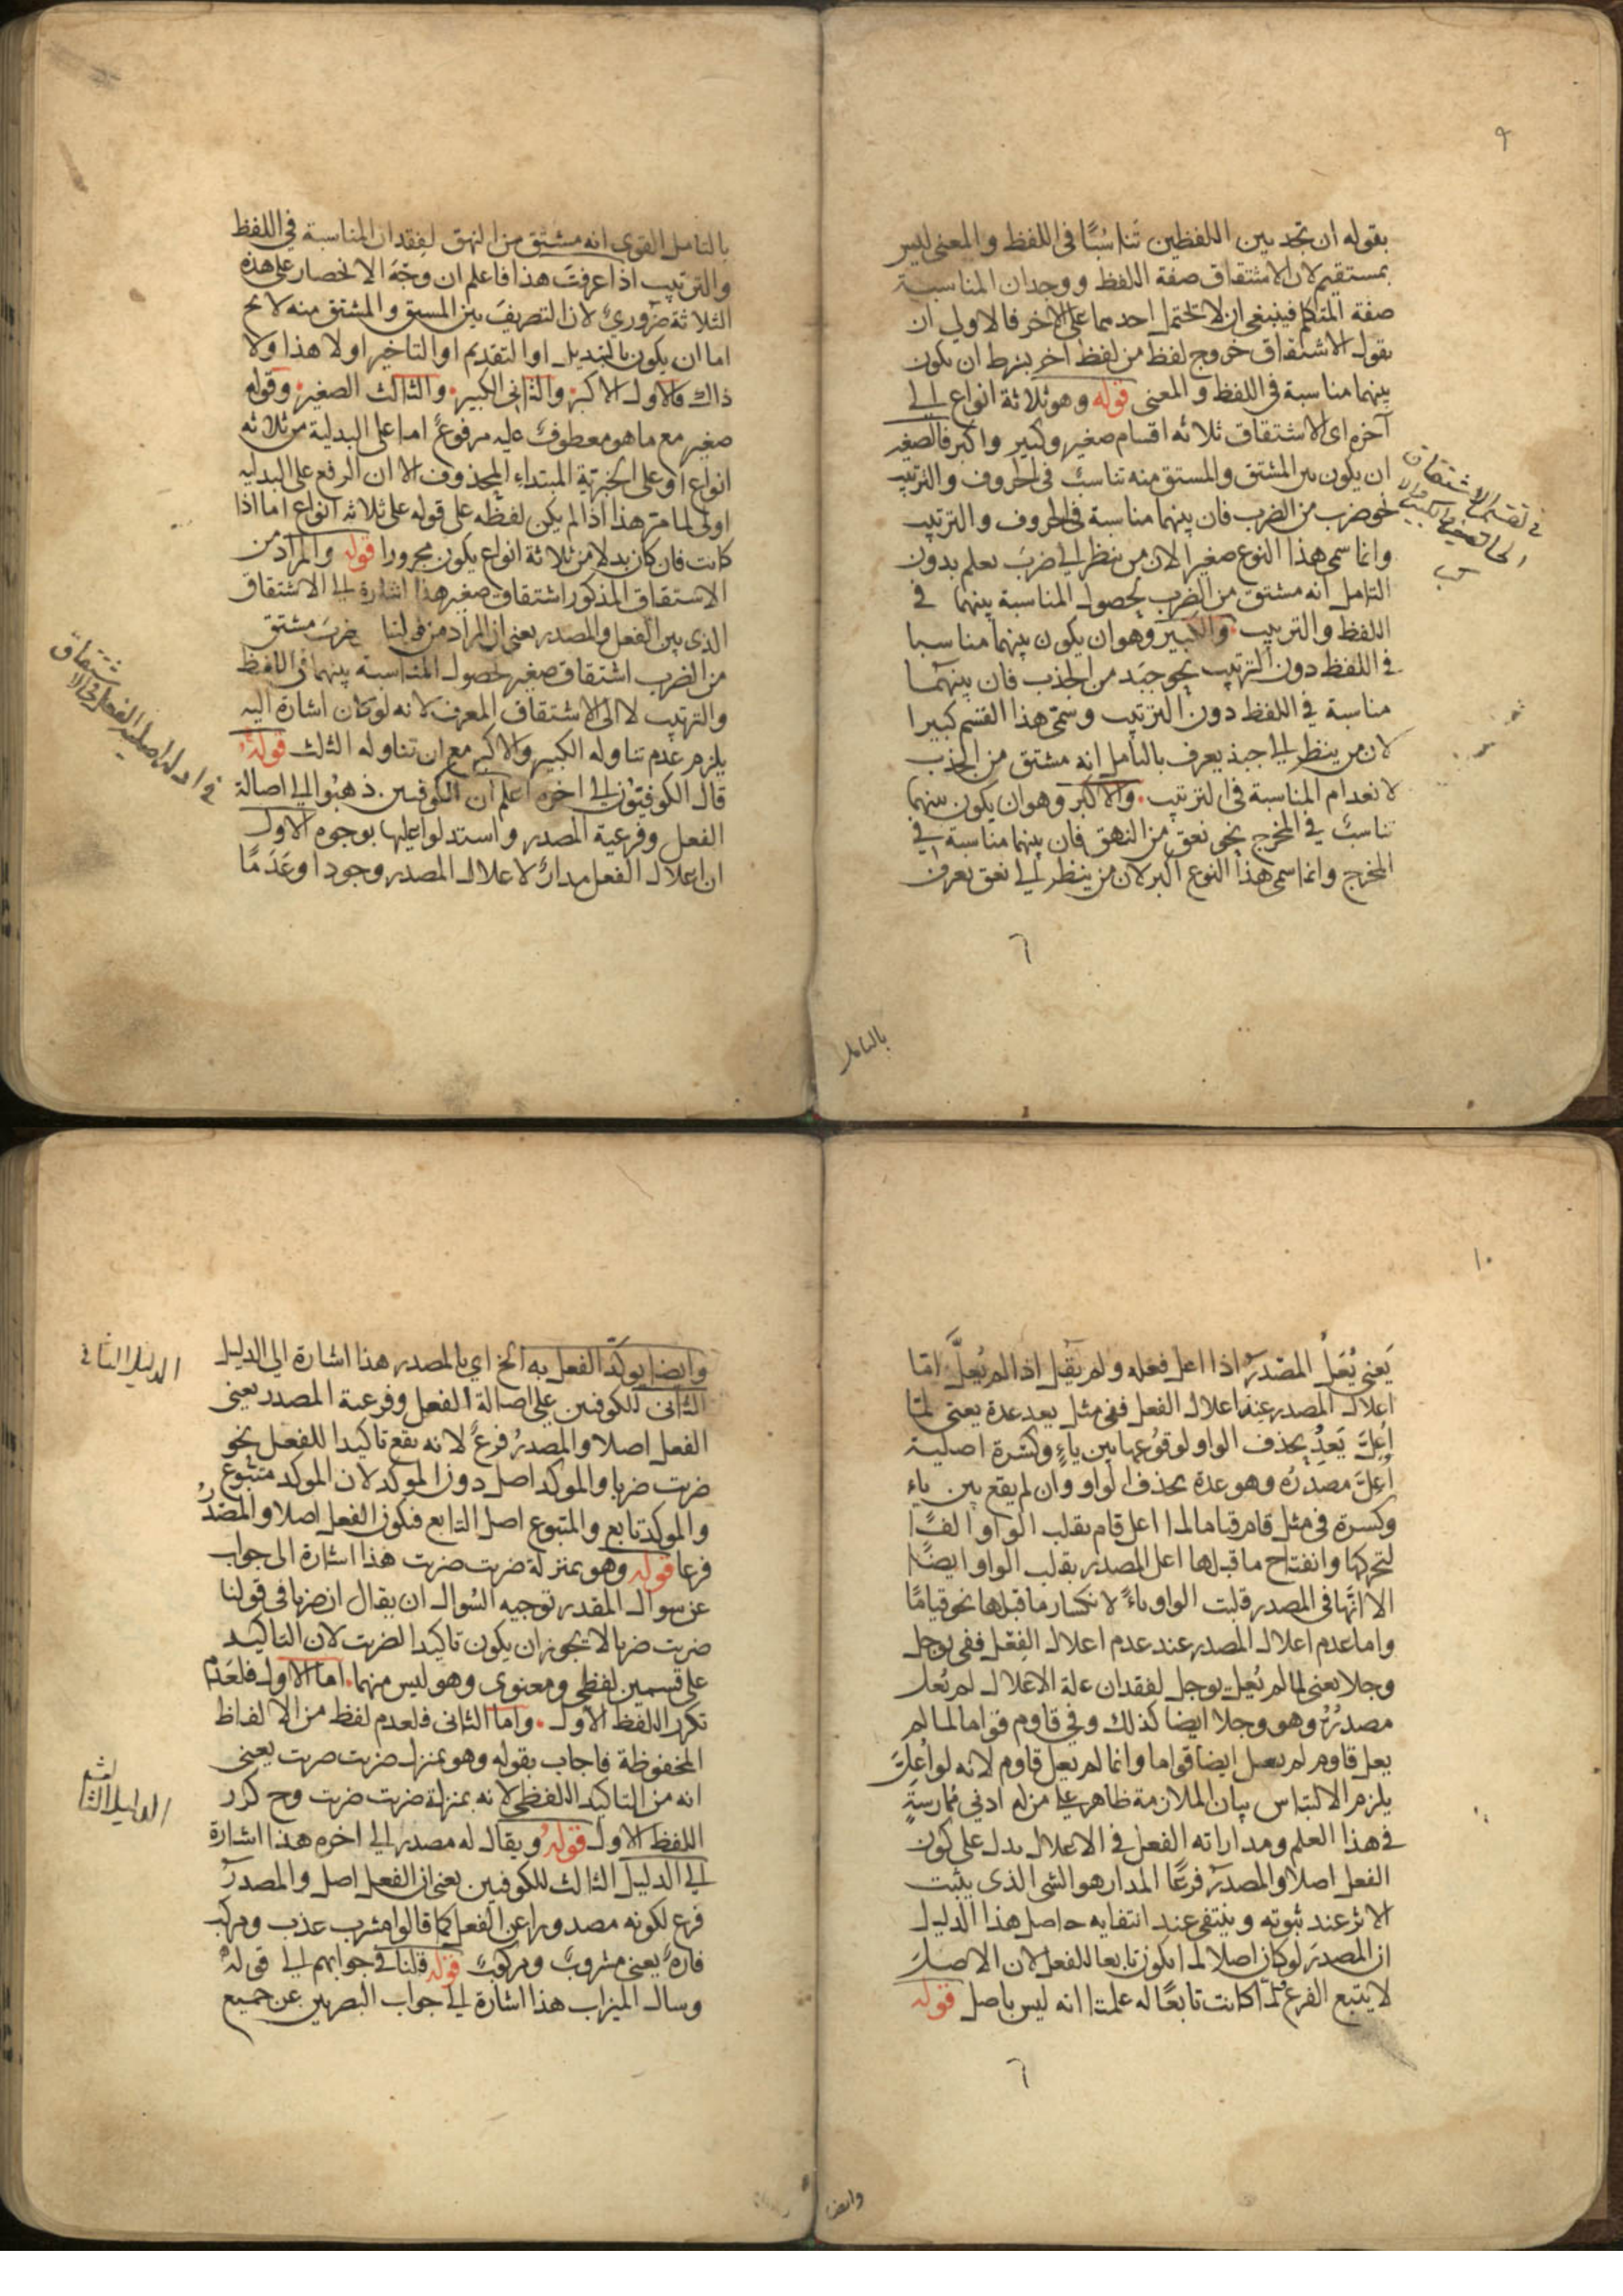 ٩
بقوله ان تجد بين اللفظين تناسُبًا في اللفظ والمعنى ليس
بمستقيم لان الاشتقاق صفة اللفظ ووجدان المناسبة
صفة المتكلم فينبغي ان لا يحتمل احدهما على الاخر فالاولى ان
يقول الاشتقاق خروج لفظ من لفظ اخر بشرط ان يكون
بينهما مناسبة في اللفظ والمعنى قوله وهو ثلاثة انواع الى
آخره اى الاشتقاق ثلاثه اقسام صغير وكبير واكبر فالصغير
ان يكون بين المشتق والمستق منه تناسبٌ في الحروف والترتيب
نحو ضرب من الضرب فان بينهما مناسبة في الحروف والترتيب
وانما سمى هذا النوع صغيرا لان من ينظر الى ضربَ يعلم بدون
التامل انه مشتق من الضرب لحصول المناسبة بينهما في
اللفظ والترتيب والكبير وهو ان يكون بينهما مناسبا
في اللفظ دون الترتيب نحو جبَد من الجذب فان بينهما
مناسبة في اللفظ دون الترتيب وسمى هذا القسم كبيرا
لان من ينظر الى جبذ يعرف بالتامل انه مشتق من الجذب
لانعدام المناسبة في الترتيب والاكبر وهو ان يكون بينهما
تناسبٌ في المخرج نحو نعق من النهق فان بينهما مناسبة في
المخرج وانما سمى هذا النوع اكبر لان من ينظر الى نعق يعرف
٦
بالتامل
في تقسيم الاشتقاق
الى الصغير والكبير والا
كبر
بالتامل القوى انه مشتق من النهق لفقدان المناسبة في اللفظ
والترتيب اذا عرفتَ هذا فاعلم ان وجَّهَ الانحصار على هذه
الثلاثة ضروريٌ لان التصريفَ بين المستق والمشتق منه لا يخ
اما ان يكون بالتبديل او التقديم او التاخير او لا هذا ولا
ذاك فالاول الاكبر والثانى الكبير والثالث الصغير وقوله
صغير مع ما هو معطوفٌ عليه مرفوعٌ اما على البدلية من ثلاثه
انواع او على الخبرية المبتداء المحذوف الا ان الرفع على البدليه
اولى لما مر هذا اذا لم يكن لفظه على قوله على ثلاثه انواع اما اذا
كانت فان كان بدلا من ثلاثة انواع يكون مجرورا قوله والمراد من
الاستقاق المذكور اشتقاق صغير هذا اشارة الى الاشتقاق
الذى بين الفعل والمصدر يعنى ان المراد من قولنا ضربَ مشتق
من الضرب اشتقاق صغير لحصول المناسبة بينهما في اللفظ
والترتيب لا الى الاشتقاق المعرف لانه لو كان اشارة اليه
يلزم عدم تناوله الكبير والاكبر مع ان تناوله الثلث قولهُ
قال الكوفيّون الى اخره اعلم ان الكوفيين ذهبُوا الى اصالة
الفعل وفرعية المصدر واستدلوا عليها بوجوه الاول
ان اعلال الفعل مدارٌ لاعلال المصدر وجودا وعَدَمًا
في ادلة اصلية الفعل في الاشتقاق
١٠
يَعنى يُعَلُّ المصْدرُ اذا اعل فعله ولم يقل اذا لم يُعلَّ امّا
اعلال المصدر عند اعلال الفعل ففى مثل يعد عدة يعنى لمّا
اُعِلَّ يَعِدُ بحذف الواو لوقوعها بين ياءٍ وكسْرة اصلية
اُعِلّ مصدرُه وهو عدة بحذف الواو وان لم يقع بين ياء
وكسرة في مثل قام قياما لما اعل قام بقلب الواو الفًا
لتحركها وانفتاح ما قبلها اعل المصدر بقلب الواو ايضًا
الا انّها في المصدر قلبت الواو ياءً لانكسار ما قبلها نحو قيامًا
واما عدم اعلال المصدر عند عدم اعلال الفعل ففى يوجل
وجلا يعنى لما لم يُعل يوجل لفقدان علة الاعلال لم يُعل
مصدرُهُ وهو وجلا ايضا كذلك وفى قاوم قواما لما لم
يعل قاوم لم يعل ايضا قواما وانما لم يعل قاوم لانه لو اُعلّ
يلزم الالتباس بيان الملازمة ظاهر على من له ادنى مُمارسةٍ
فى هذا العلم ومداراته الفعل فى الاعلال يدل على كون
الفعل اصلا والمصدر فرعًا المدار هو الشى الذى يثبت
الاثر عند ثبوته وينتفى عند انتفايه حاصل هذا الدليل
ان المصدرَ لو كان اصلا لما يكون تابعا للفعل لان الاصلَ
لا يتبع الفرع لمّا كانت تابعًا له علمنا انه ليس باصل قوله
٦
وايض
وايضا يوكّد الفعل به الخ اي بالمصدر هذا اشارة الى الدليل
الثانى للكوفيين على اصالة الفعل وفرعية المصدر يعنى
الفعل اصلا والمصدرُ فرعٌ لانه يقع تاكيدا للفعل نحو
ضربت ضربا والموكد اصل دون الموكد لان الموكد متبُوع
والموكد تابع والمتبوع اصل التابع فيكون الفعل اصلا والمصْدرُ
فرعا قوله وهو بمنزلة ضربت ضربت هذا اشارة الى جواب
عن سوال المقدر توجيه السُوال ان يقال ان ضربا في قولنا
ضربت ضربا لا يجوز ان يكون تاكيدا لضربت لان التاكيد
على قسمين لفظى ومعنوى وهو ليس منهما اما الاول فلعَدم
تكرر اللفظ الاول واما الثانى فلعدم لفظ من الالفاظ
المحفوظة فاجاب بقوله وهو بمنزلة ضربت ضربت يعنى
انه من التاكيد اللفظى لانه بمنزلة ضربت ضربت وح كرر
اللفظ الاول قولهُ ويقال له مصدر الى اخره هذا اشارة
الى الدليل الثالث للكوفيين يعنى ان الفعل اصل والمصدرُ
فرع لكونه مصدورا عن الفعل كما قالوا مشرب عذب ومركب
فارهٌ يعنى مشروبٌ ومركوبٌ قوله قلنا فى جوابهم الى قولهُ
وسال الميزاب هذا اشارة الى جواب البصريين عن جميع
الدليل الثانى
الدليل الثالث